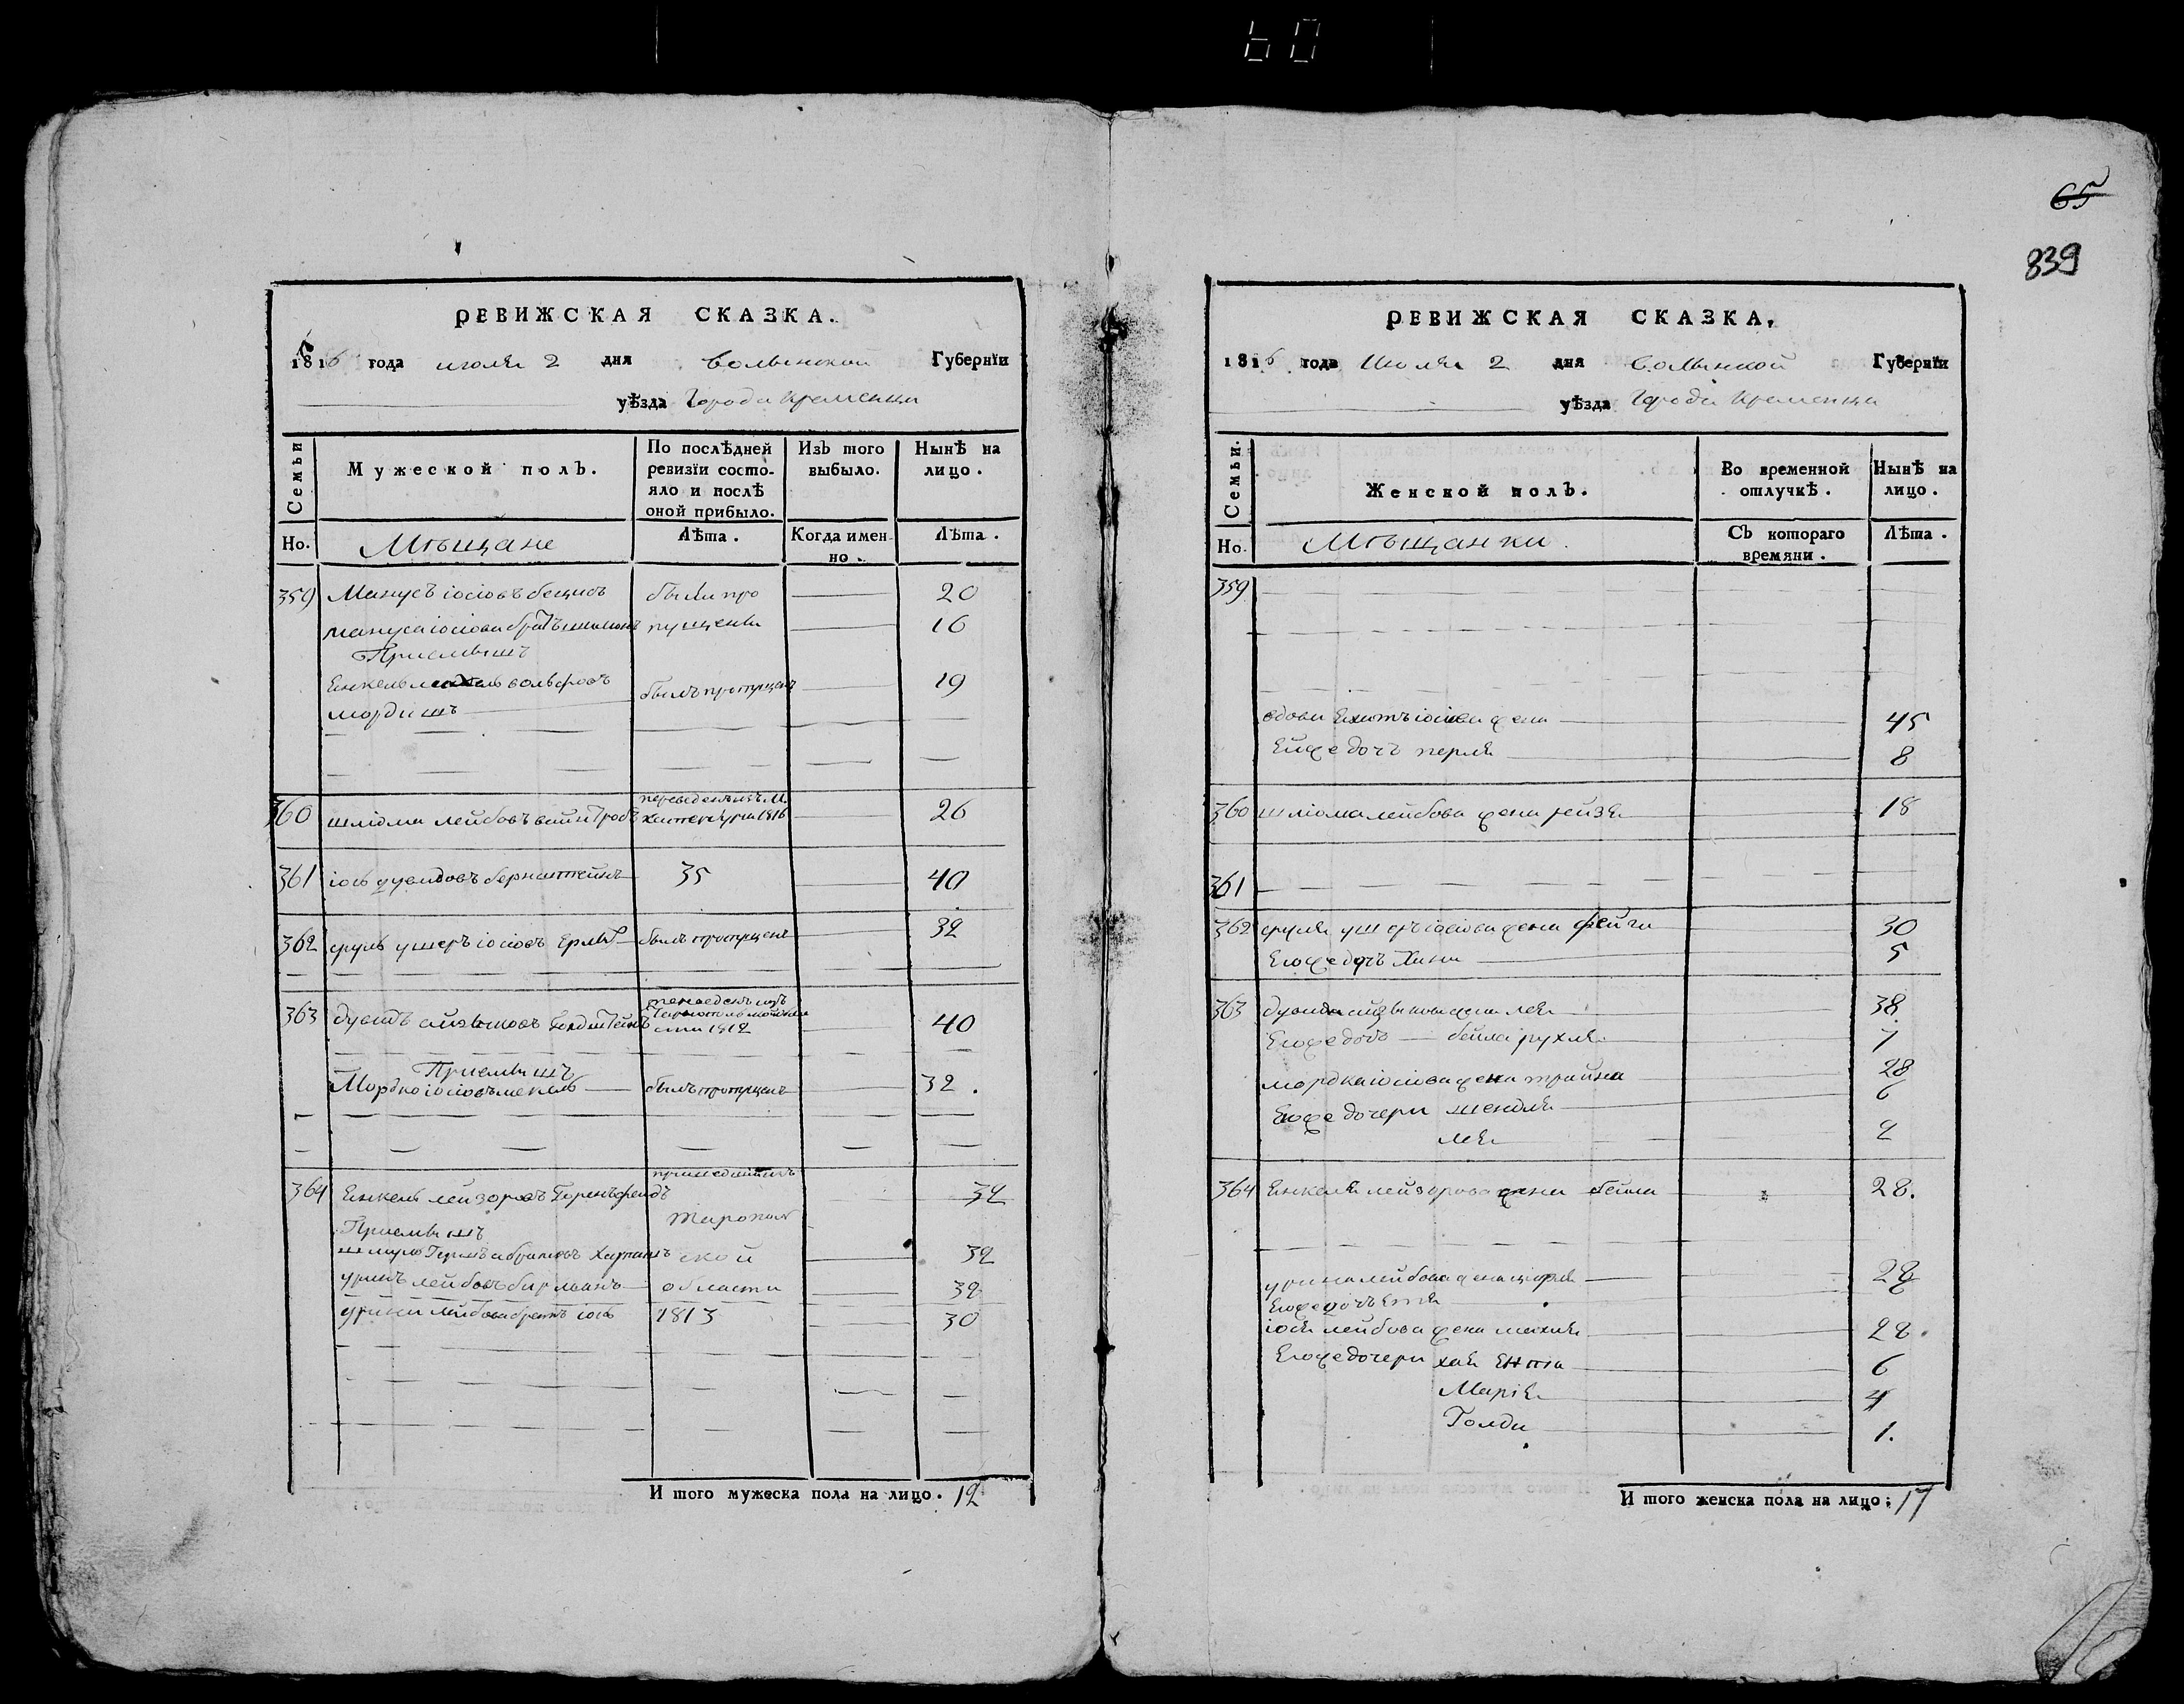 60
65
839
РЕВИЖСКАЯ СКАЗКА.
1816 года июля 2 дня волынской Губернїи
уѣзда Города Кременца
Семьи
Мужеской полъ.
По послѣдней ревизїи состояло и послѣ оной прибыло.
Изъ того выбыло.
Нынѣ на лицо.
Но.
Мѣщане
Лѣта.
Когда имен-
но.
Лѣта.
359 Манусъ іосіовъ были про 20
мануса іосіова братъ шимонъ пущены 16
Приемышъ
Енкель вольфовъ былъ пропущенъ 19
мордишъ
360 шліома лейбовъ вайнтробъ переведенъ изъ м. 1816 26
361 іось дувидовъ бернштейнъ 35 40
362 сруль ушеръ іосіовъ былъ пропущенъ 32
363 дувидъ айзыковъ переведенъ изъ 1812 40
Приемышъ
Мордко іосіовъ былъ пропущенъ 32.
364 Енкель лейзоровъ пришедшіи изъ 32
Тарнопол
Приемышъ
абрамовъ ской 32
уринъ лейбовъ области 32
урина лейбова братъ іось 1813 30
И того мужеска пола на лицо. 12
РЕВИЖСКАЯ СКАЗКА,
1816 года Июля 2 дня волынской Губернїи
уѣзда Города Кременца
Семьи.
Женской полъ.
Во временной отлучкѣ.
Нынѣ на лицо.
Но.
Мѣщанки.
Съ котораго
времяни.
Лѣта.
359
вдова іосіова жена 45
Ейже дочь перля 8
360 шліома лейбова жена рейзя 18
361
362 сруля ушеръ іосіова жена фейга 30
Егоже дочь Хана 5
363 дувида айзыкова жена лея 38.
Егоже дочь бейла рухля 7
мордка іосіова жена трайна 28
Егоже дочери шендля 6
лея 2
364 Енкеля лейзорова жена бейла 28.
урина лейбова жена 28
Егоже дочь
іося лейбова жена 28.
Егоже дочери хая Ента 6
Марія 4
Голда 1.
И того женска пола на лицо; 17